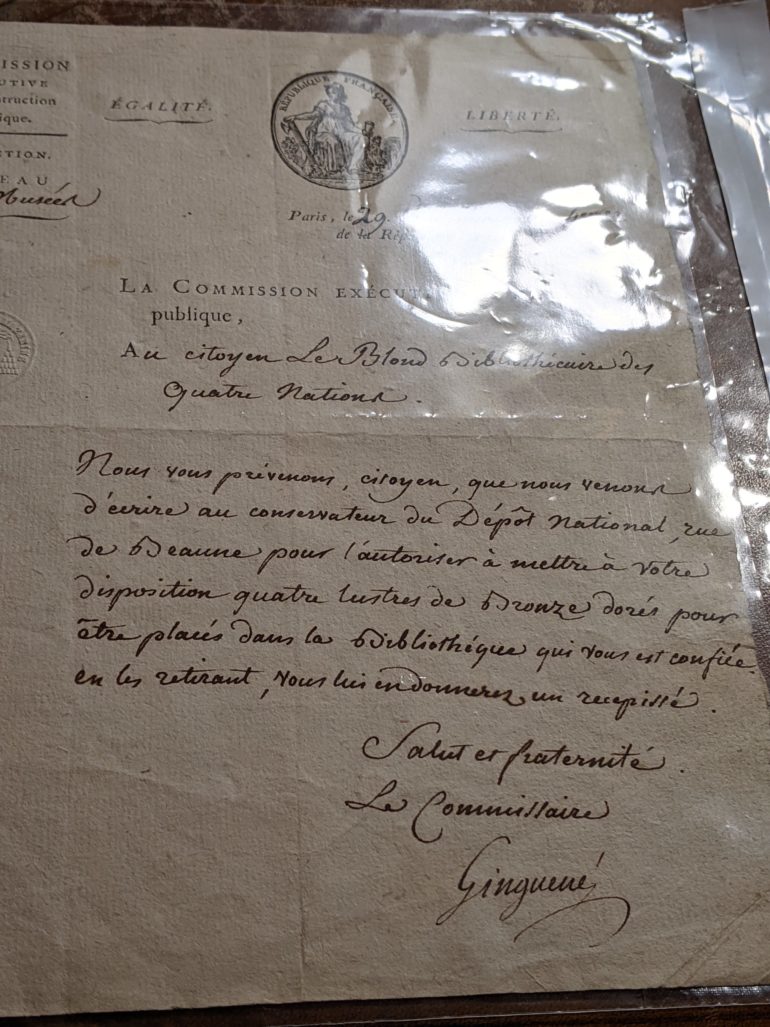 ISSION
UTIVE
struction
ique.
CTION.
EAU
Musées
ÉGALITÉ.
RÉPUBLIQUE FRANÇAISE
LIBERTÉ.
Paris, le 29
de la Rép
LA COMMISSION EXÉCUT
publique,
Au citoyen Le Blond Bibliothécaire des
Quatre Nations.
Nous vous prévenons, citoyen, que nous venons
d'écrire au conservateur du Dépôt National, rue
de Beaune pour l'autoriser à mettre à votre
disposition quatre lustres de Bronze dorés pour
être placés dans la Bibliothéque qui vous est confiée.
en les retirant, vous lui en donnerez un recepissé.
Salut et fraternité.
Le Commissaire
Ginguené